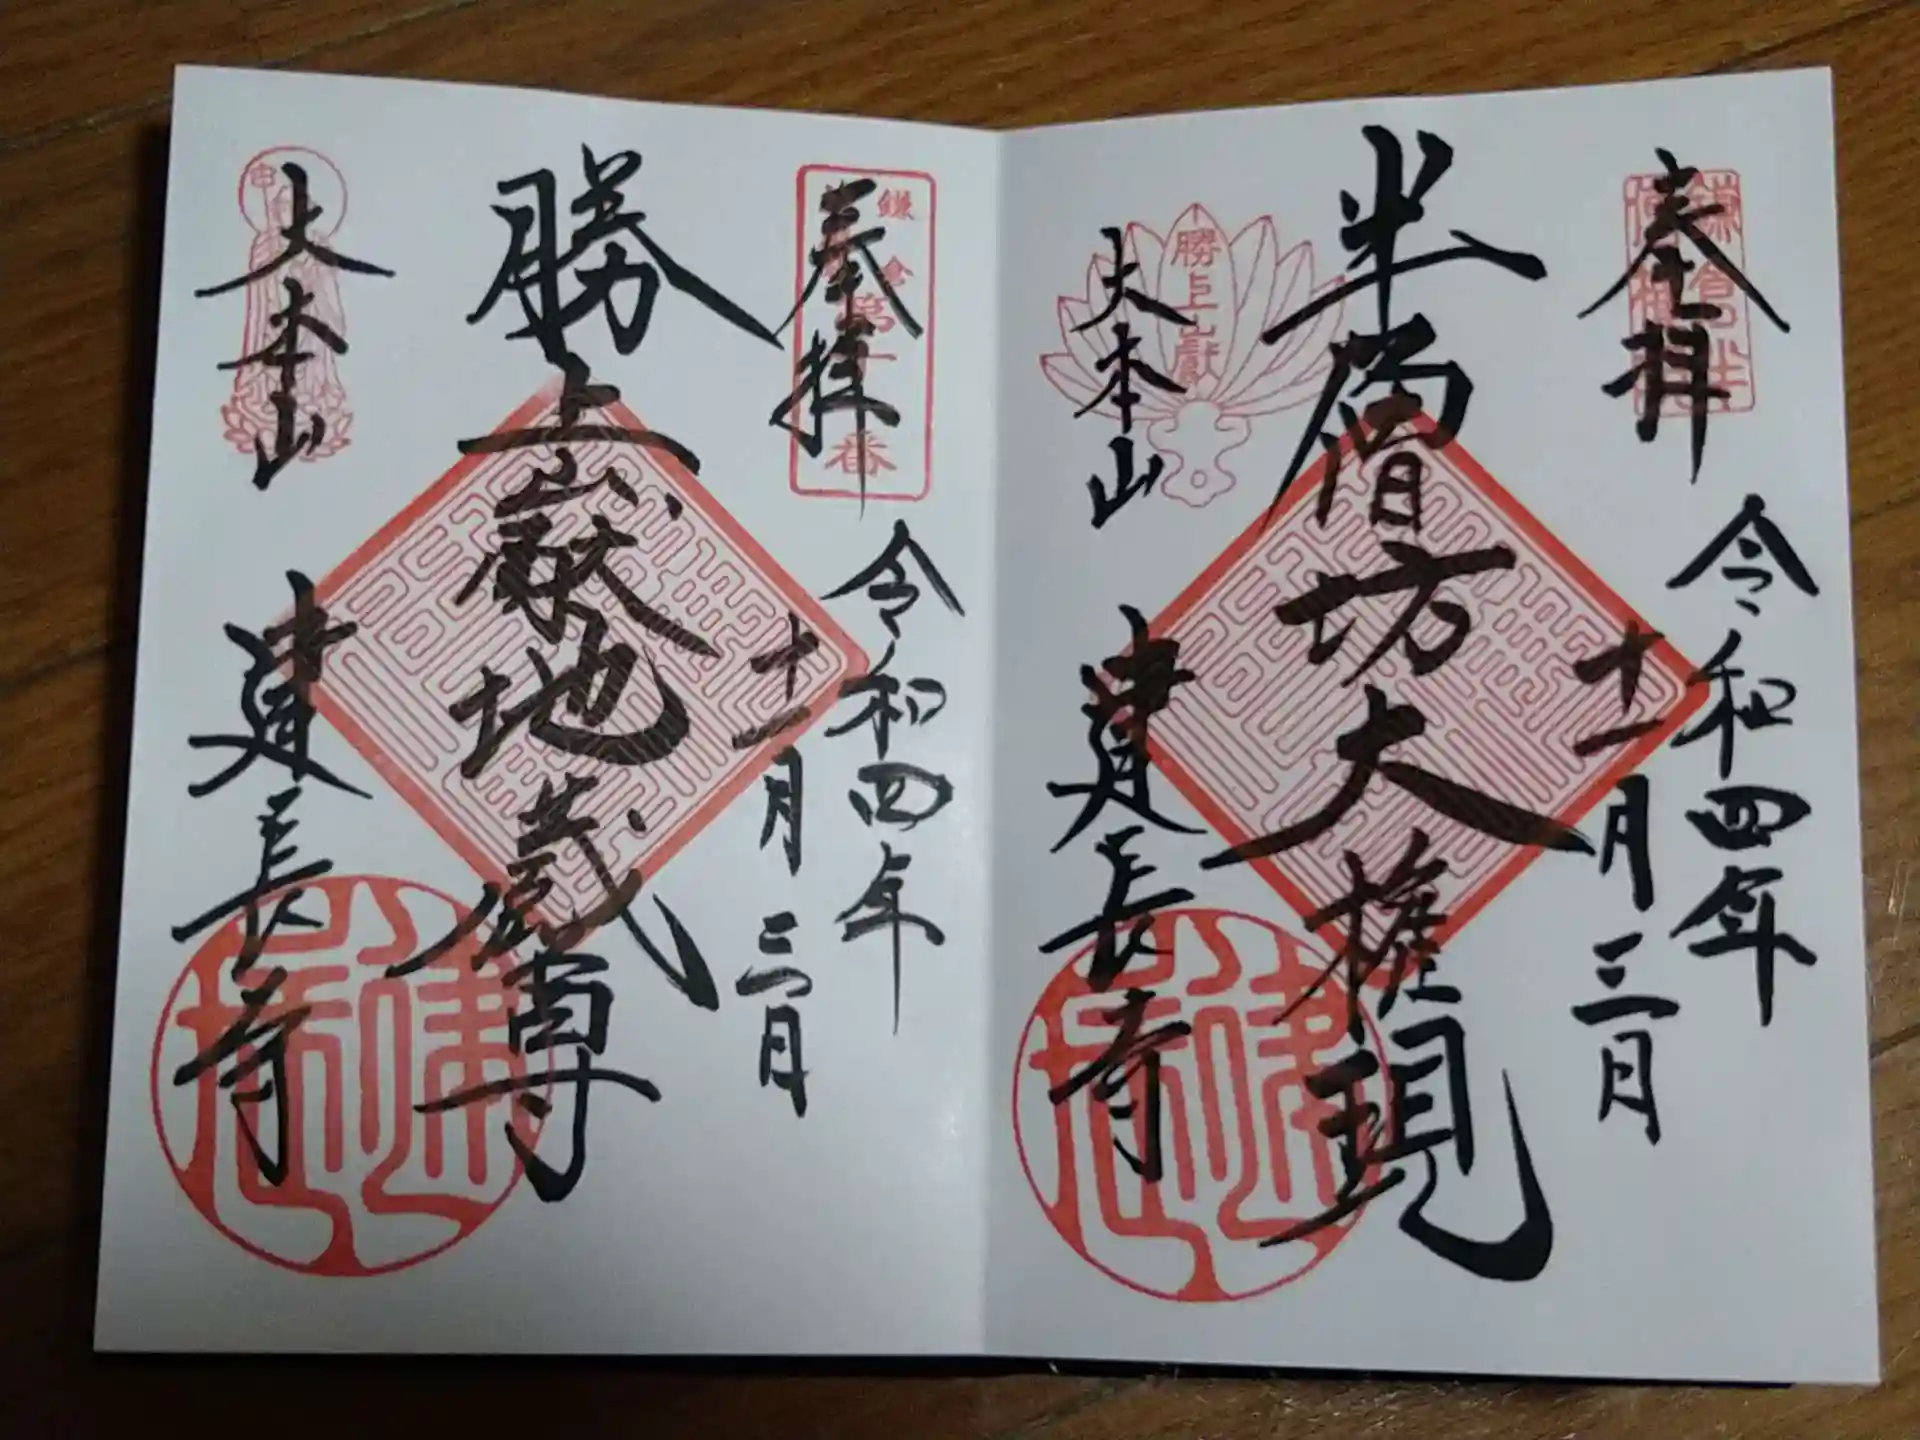 奉拝
令和四年
十一月三日
半僧坊大権現
勝上嶽
大本山
建長寺
奉拝
令和四年
十一月三日
鎌倉
第十番
勝上嶽地蔵尊
大本山
建長寺